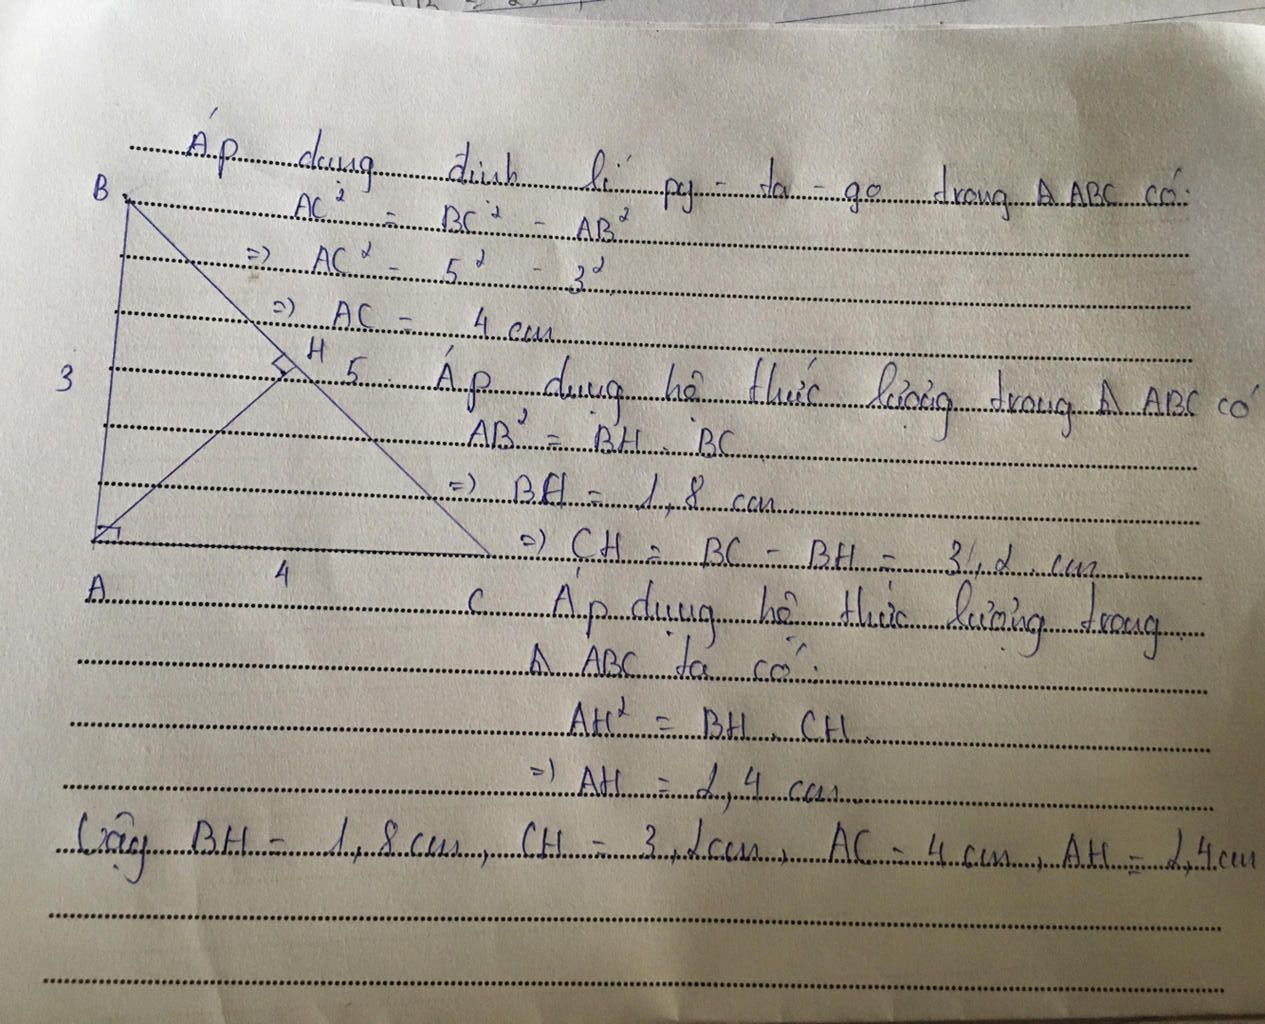 Áp dụng định lí py-ta-go trong Δ ABC có:
B
AC² = BC² - AB²
=> AC² = 5² - 3²
=> AC = 4 cm
H
3
5
Áp dụng hệ thức lượng trong Δ ABC có
AB² = BH . BC
=> BH = 1,8 cm
=> CH = BC - BH = 3,2 cm
4
A
C
Áp dụng hệ thức lượng trong
Δ ABC ta có:
AH² = BH . CH
=> AH = 2,4 cm
Vậy BH = 1,8 cm, CH = 3,2cm, AC = 4 cm, AH = 2,4 cm